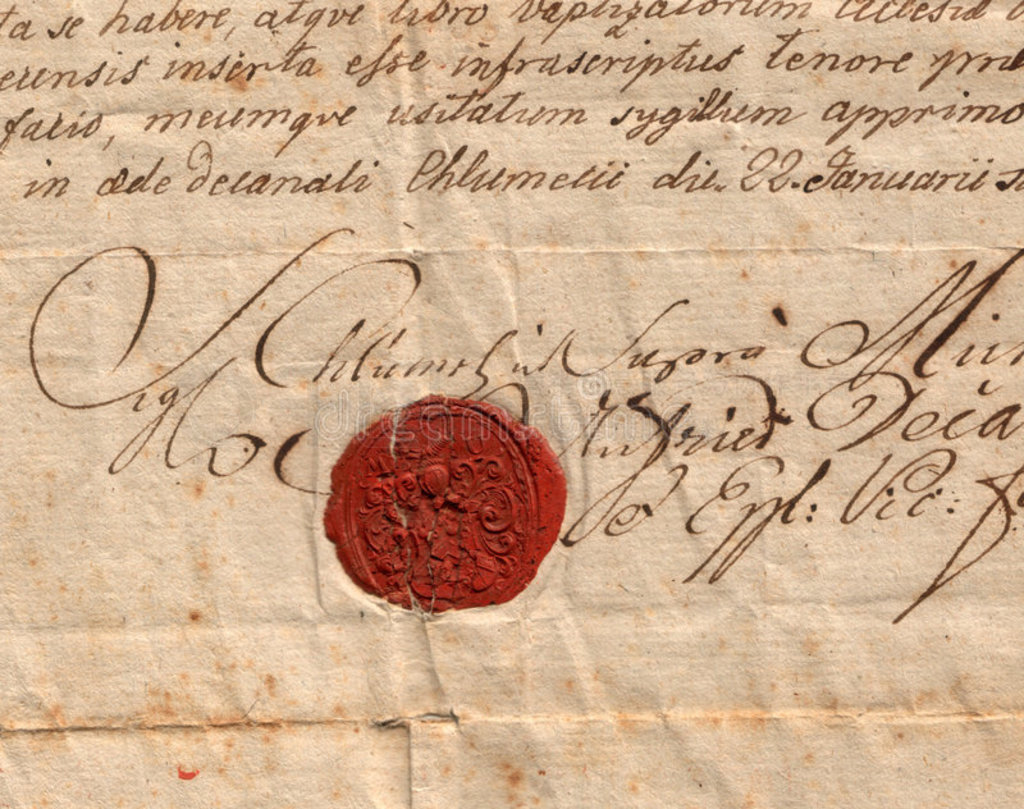 ta se habere, atqve libro baptizatorum Ecclesiæ
erensis inserta esse infrascriptus tenore præ
facio, meumqve usitatum sygillum apprimo
in æde decanali Chlumecii die 22. Januarii
Sigl Chlumetzii Supra
Decā
Eppl: Vic:
dreamstime